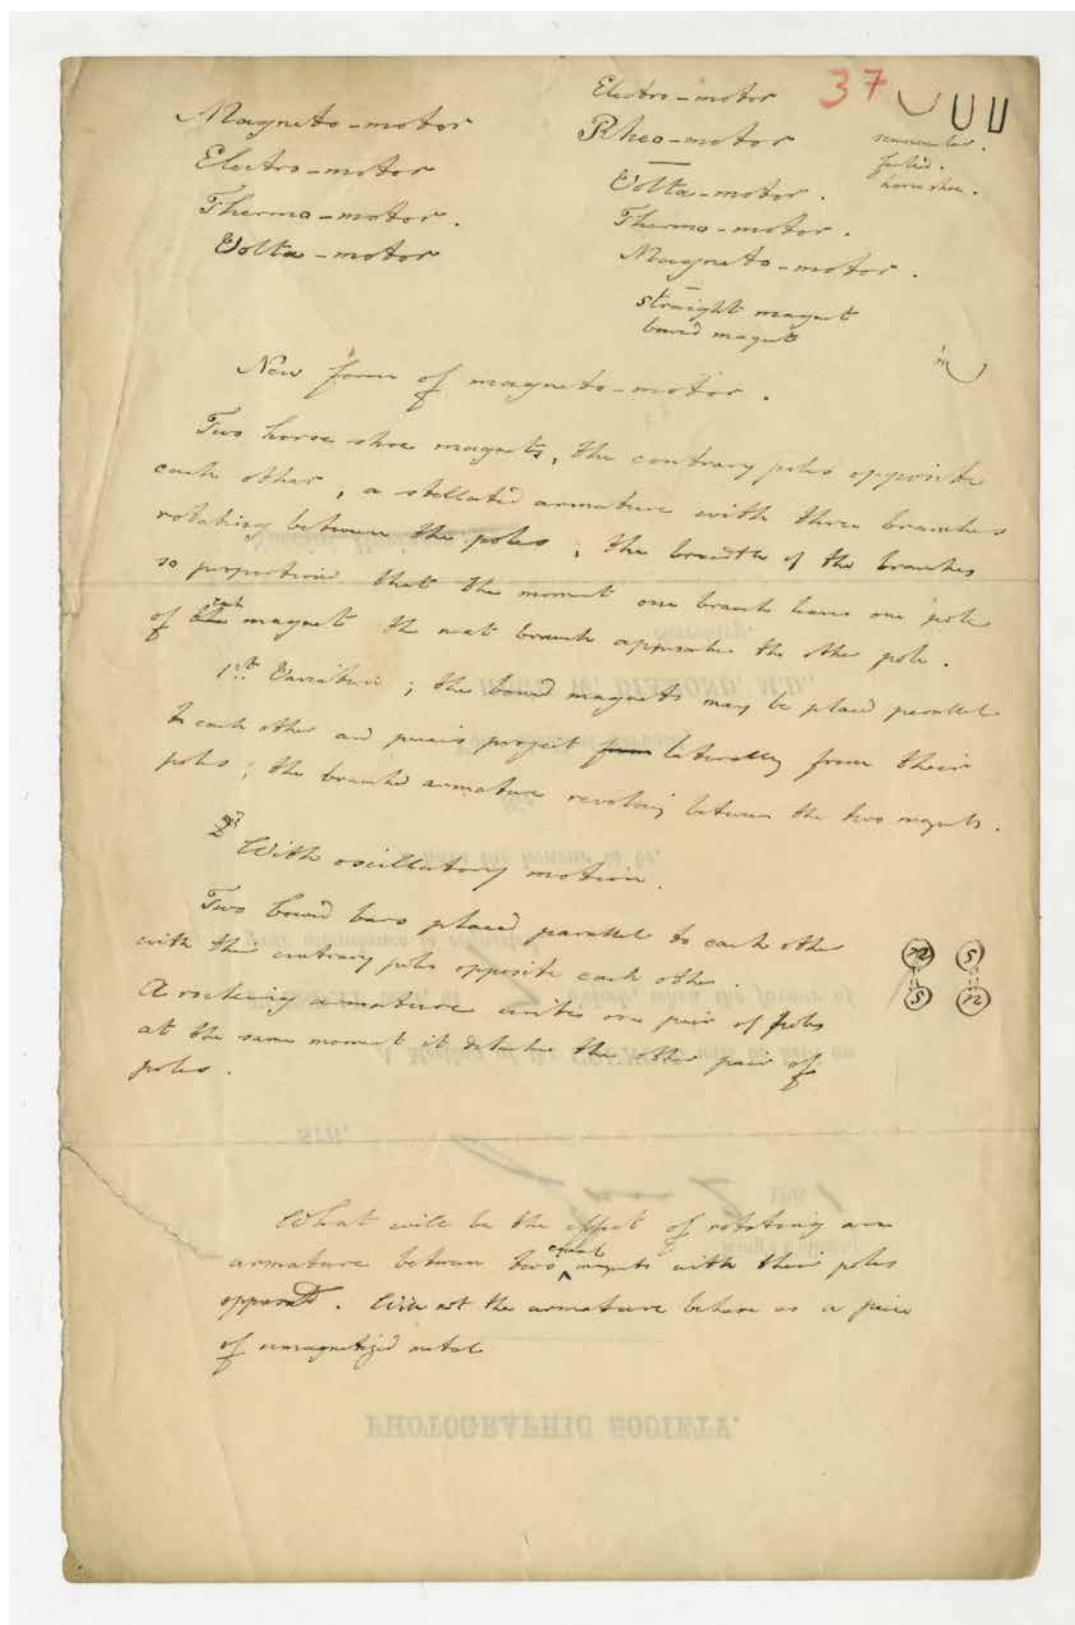 Magneto-motor
Electro-motor
Thermo-motor.
Volta-motor
Electro-motor
Rheo-motor
Volta-motor.
Thermo-motor.
Magneto-motor.
straight magnet
bow'd magnet
37
semicircular.
horse shoe.
New form of magneto-motor.
Two horse shoe magnets, the contrary poles opposite
each other, a stellated armature with three branches
rotating between the poles; the breadth of the branches
so proportion'd that the moment one branch leaves one pole
of the each magnet the next branch approaches the other pole.
1st Variation; the bow'd magnets may be placed parallel
to each other and pieces project from laterally from their
poles; the branch'd armature revolving between the two magnets.
2d With oscillatory motion.
Two bow'd bars placed parallel to each other
with their contrary poles opposite each other.
A rocking armature unites one pair of poles
at the same moment it detaches the other pair of
poles.
n s
s n
What will be the effect of rotating an
armature between two equal magnets with their poles
opposed. Will not the armature behave as a piece
of unmagnetized metal
PHOTOGRAPHIC SOCIETY.